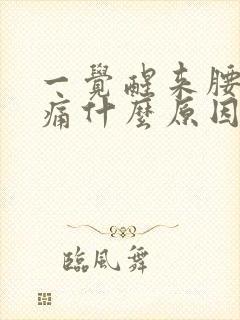 一覺醒来腰
痛什麽原因
臨風舞